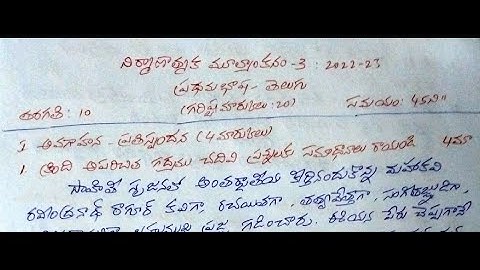 నిర్మాణాత్మక మూల్యాంకనం - 3 : 2022-23
ప్రథమభాష - తెలుగు
తరగతి : 10 (గరిష్ట మార్కులు : 20) సమయం : 45ని॥
I అవగాహన - ప్రతిస్పందన (4మార్కులు)
1. క్రింది అపరిచిత గద్యము చదివి ప్రశ్నలకు సమాధానాలు రాయండి 4మా
సాహితీ సృజనలో అంతర్జాతీయ కీర్తినందుకొన్న మహాకవి
రవీంద్రనాథ్ ఠాగూర్ కవిగా, రచయితగా, తత్త్వవేత్తగా, సంగీతజ్ఞుడిగా,
ప్రజ్ఞ గడించారు. ఈయన పేరు చెప్పగానే